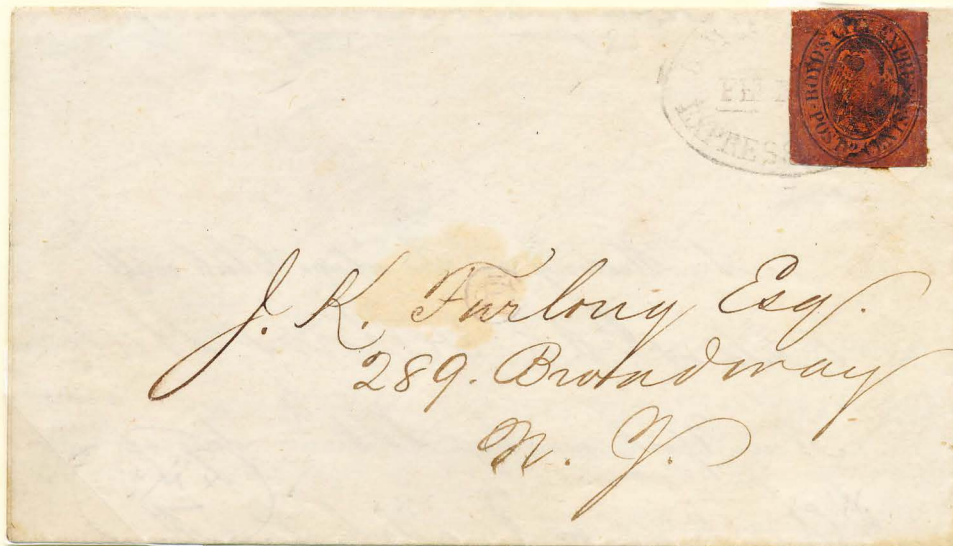 BOYD'S CITY EXPRESS
POST 2 CENTS
EXPRESS
J. K. Furlong Esq.
289. Broadway
N. Y.